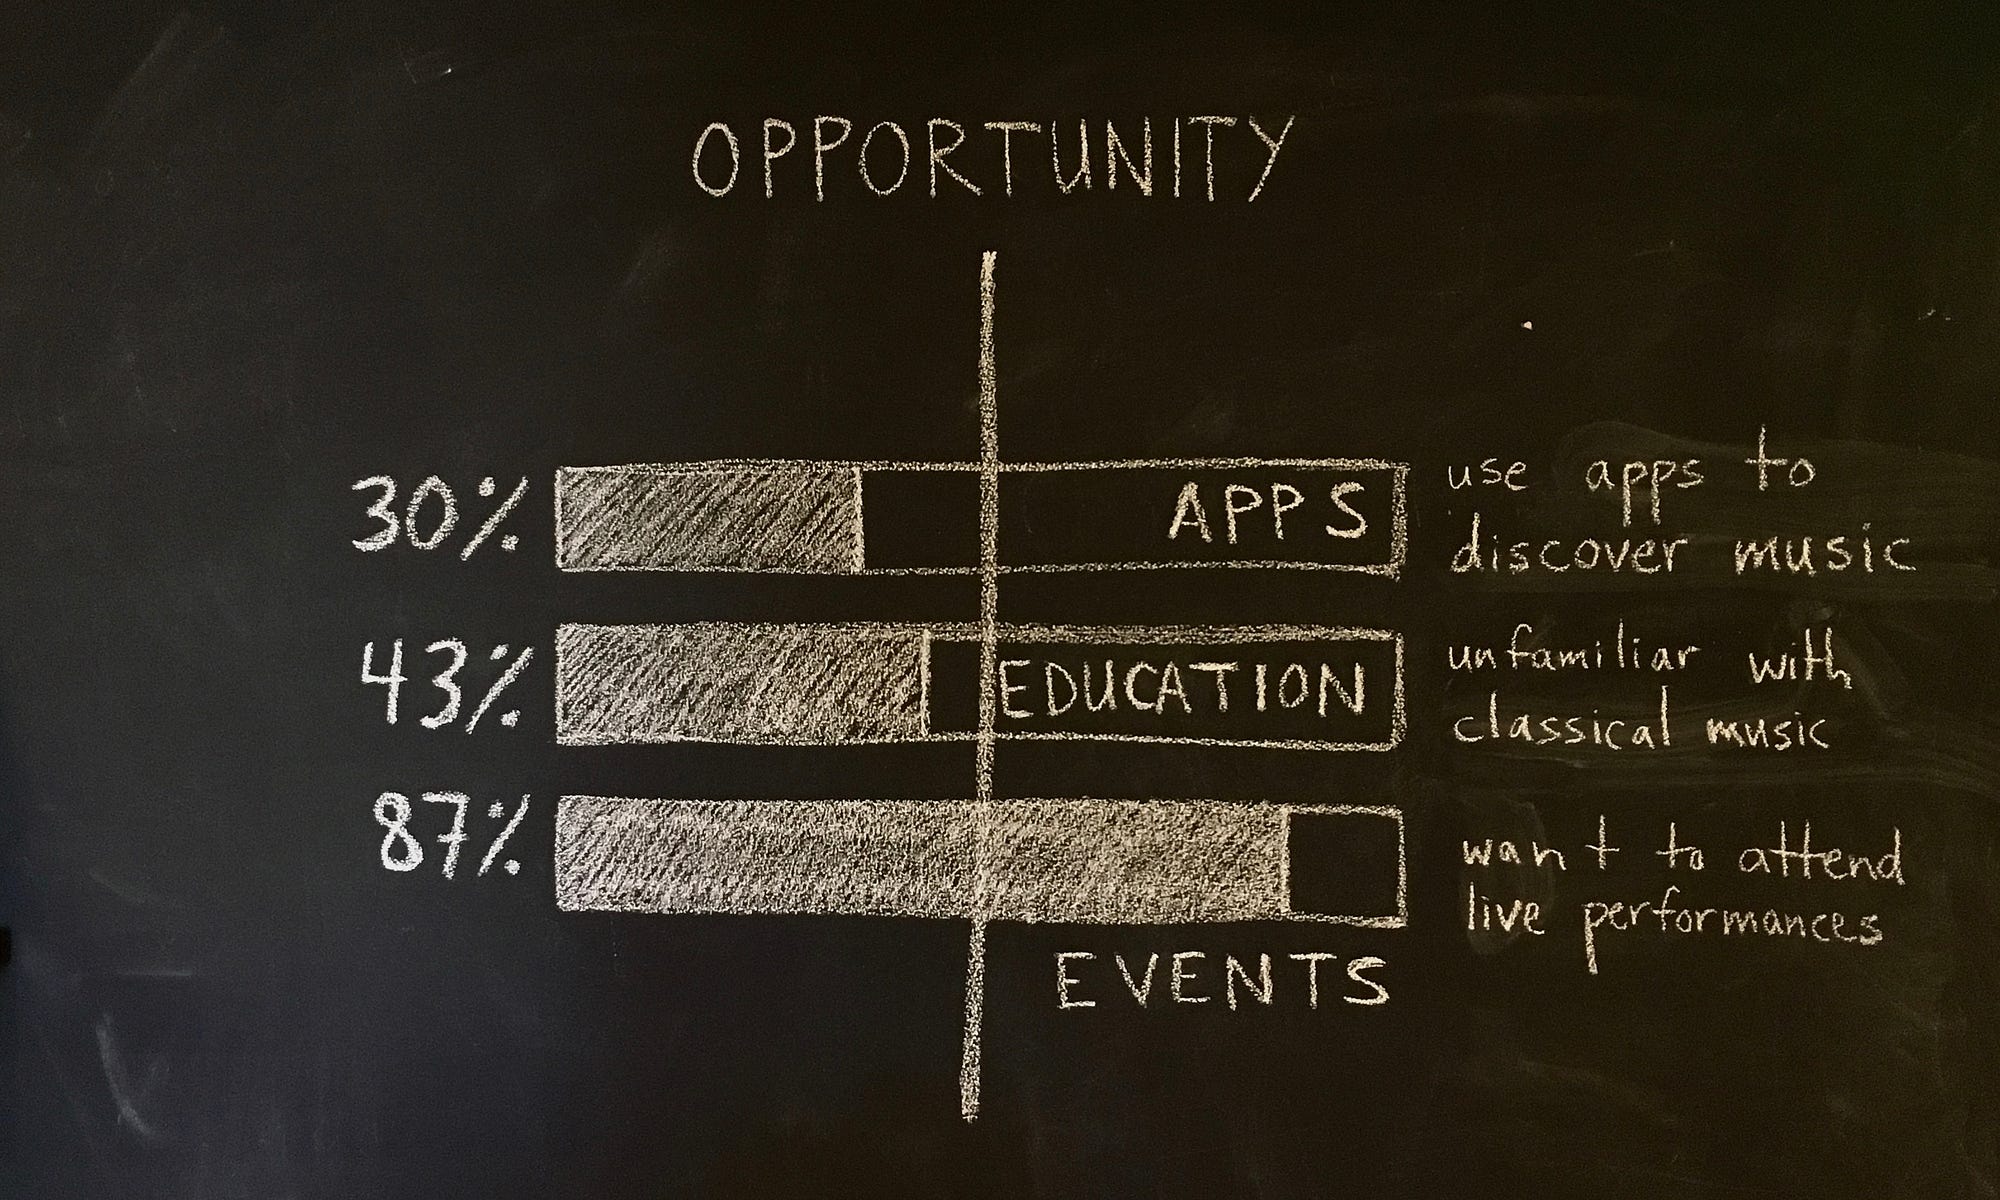 OPPORTUNITY
30%
APPS
use apps to
discover music
43%
EDUCATION
unfamiliar with
classical music
87%
want to attend
live performances
EVENTS